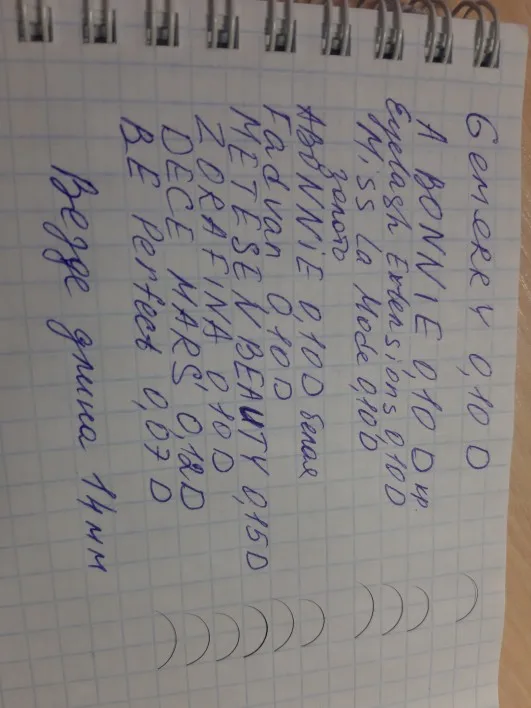 Gemerry 0,10 D
A BONNIE 0,10 D кр.
Eyelash Extensions 0,10D
Miss La Mode 0,10D
золото
ABONNIE 0,10D белая
Fadvan 0,10D
METESEN BEAUTY 0,15D
ZORAFINA 0,10D
DECE MARS' 0,12D
BE Perfect 0,07D
Везде длина 14мм